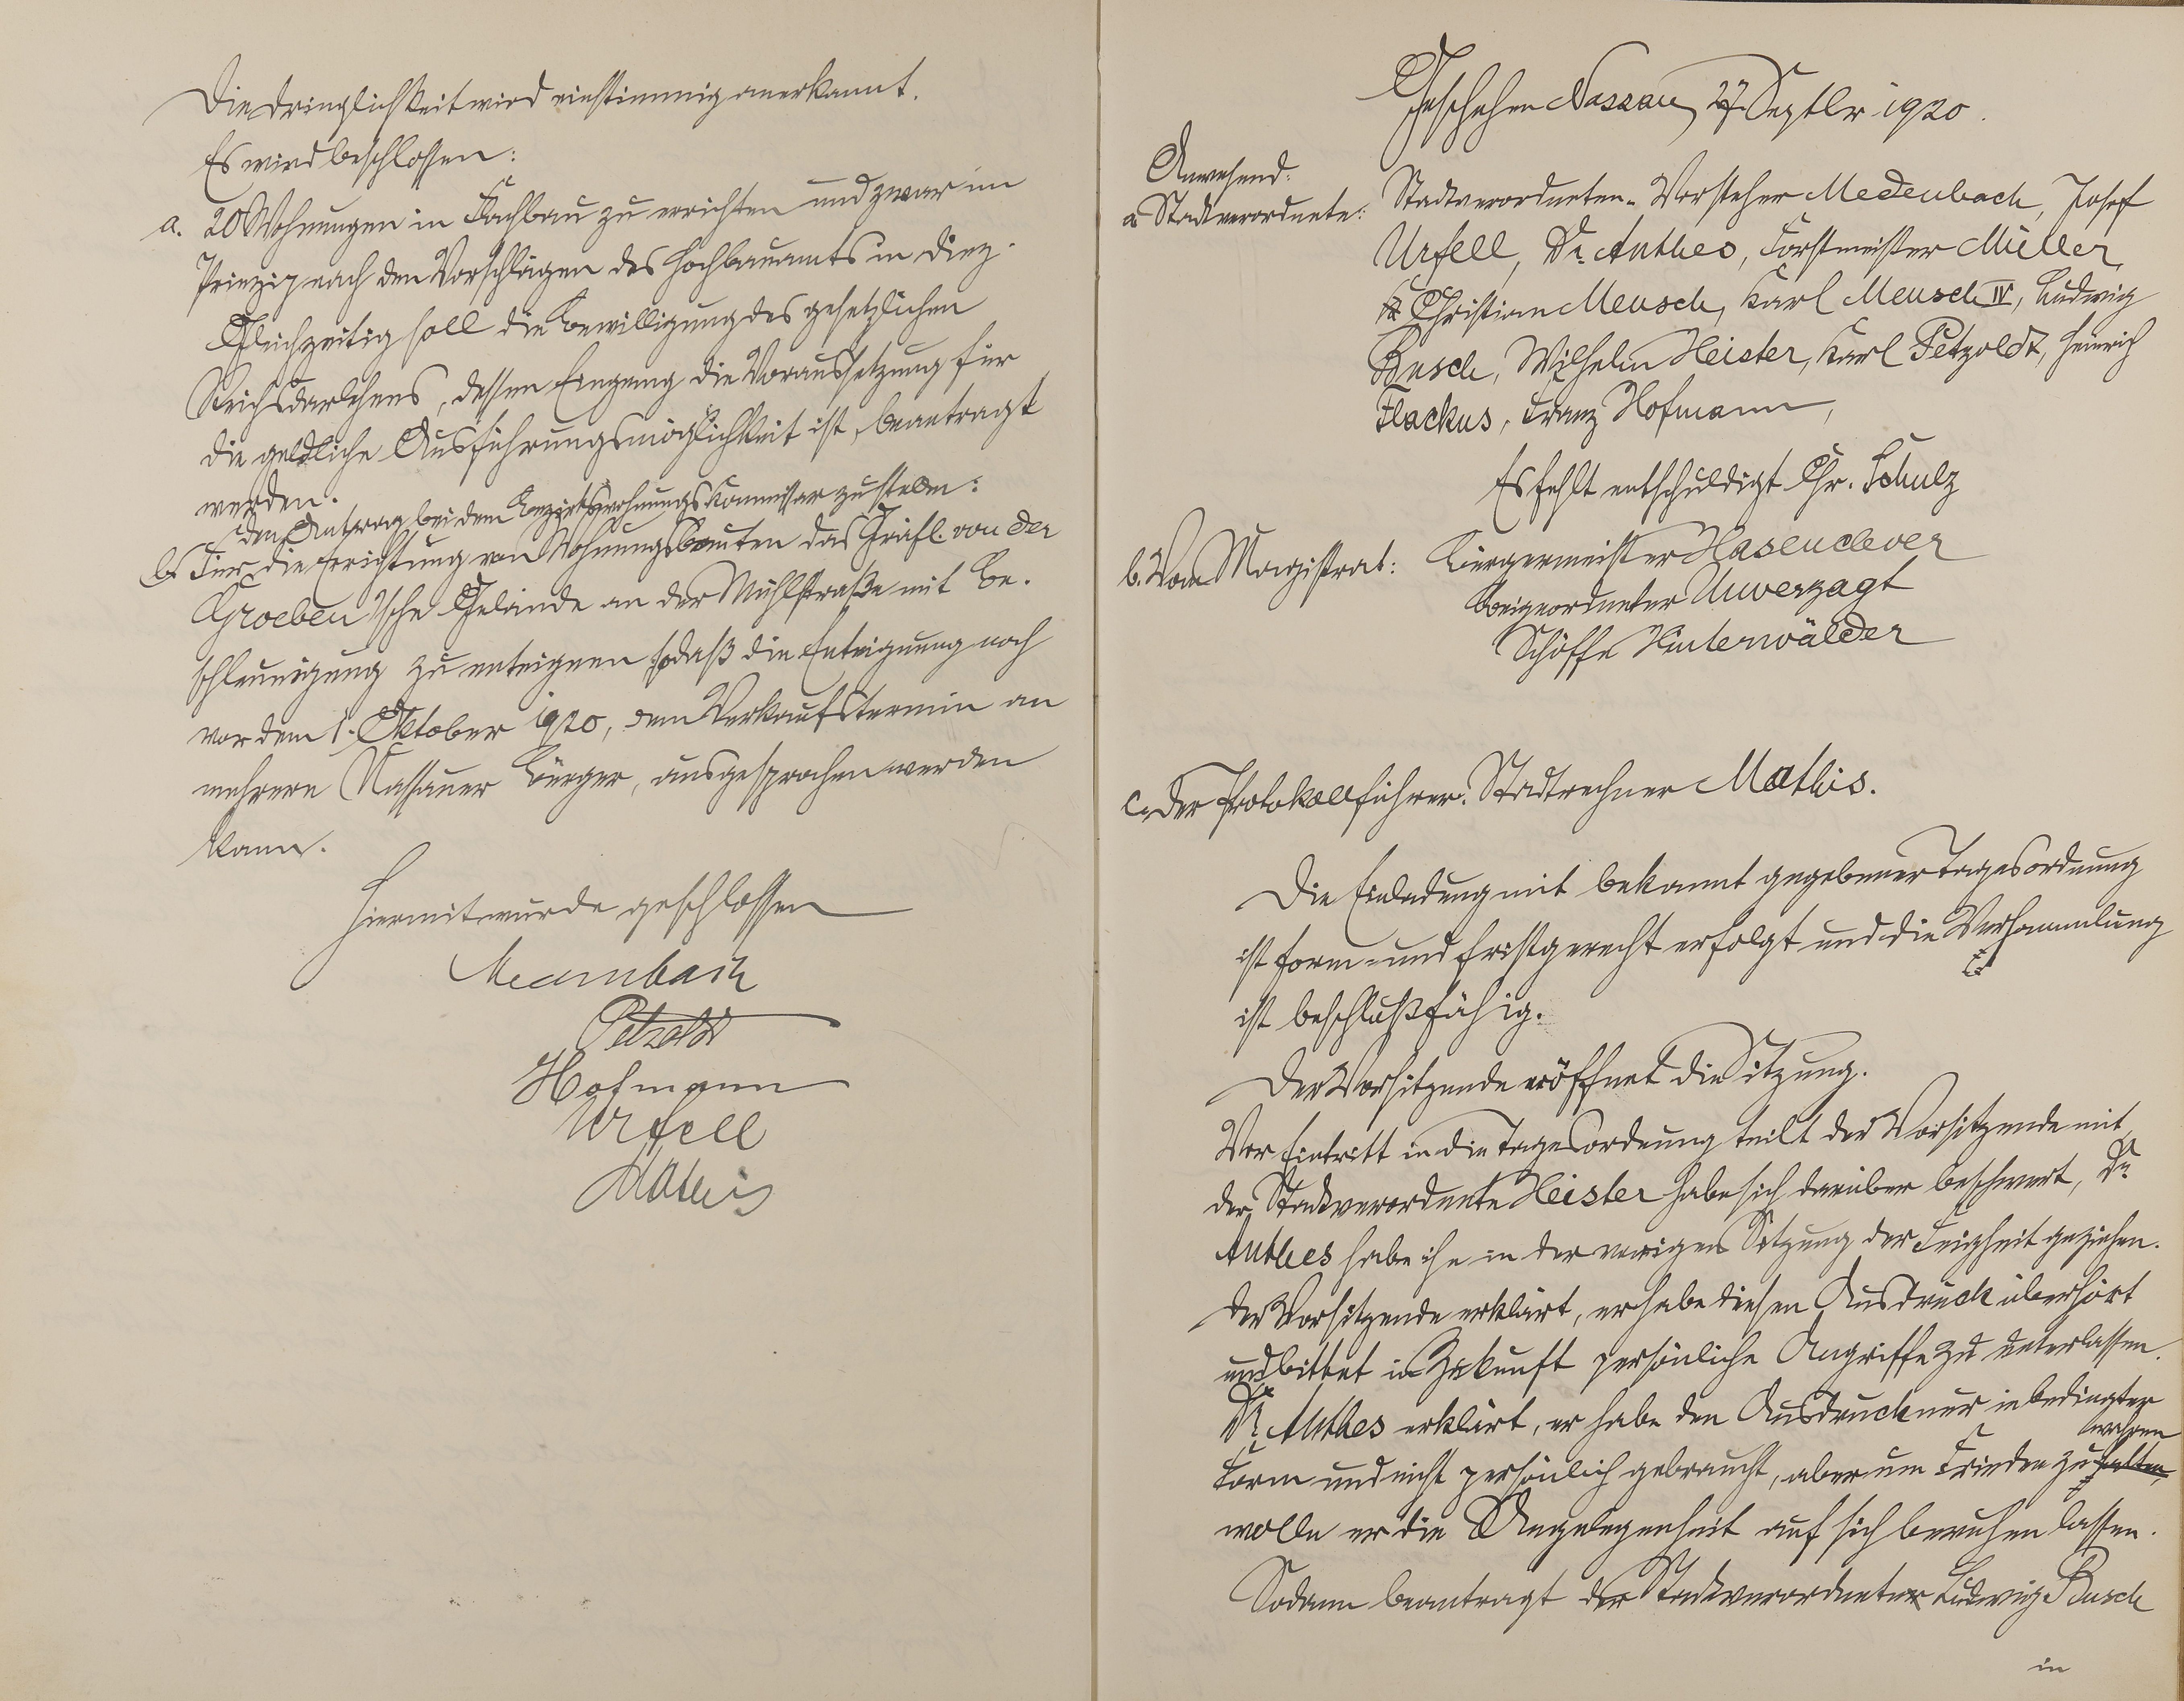 Die Dringlichkeit wird einstimmig anerkannt.
Es wird beschlossen:
a. 20 Wohnungen in Flachbau zu errichten und zwar im
Prinzip nach den Vorschlägen des Hochbauamts in Diez.
Gleichzeitig soll die Bewilligung des gesetzlichen
Reichsdarlehens, dessen Eingang die Voraussetzung für
die geldliche Ausführungsmöglichkeit ist, beantragt
werden.
den Antrag bei dem Bezirkswohnungskommissar zu stellen:
b. Für die Errichtung von Wohnungsbauten das Gräfl. von der
Groeben'sche Gelände an der Mühlstraße mit Be-
schleunigung zu enteignen sodaß die Enteignung noch
vor dem 1. Oktober 1920, dem Verkaufstermin an
mehrere Nassauer Bürger, ausgesprochen werden
kann.
Hiermit wurde geschlossen
Medenbach
Petzoldt
Hofmann
Urfell
Mathis
Geschehen Nassau, 27. Septbr 1920.
Anwesend:
a Stadtverordnete: Stadtverordneten-Vorsteher Medenbach, Josef
Urfell, Dr. Anthes, Forstmeister Müller,
Christian Meusch, Karl Meusch IV, Ludwig
Busch, Wilhelm Heister, Karl Petzoldt, Heinrich
Flackus, Franz Hofmann,
Es fehlt entschuldigt Chr. Schulz
b. Vom Magistrat: Bürgermeister Hasenclever
Beigeordneter Unverzagt
Schöffe Hinterwälder
c. Der Protokollführer: Stadtrechner Mathis.
Die Einladung mit bekannt gegebener Tagesordnung
ist form- und fristgerecht erfolgt und die Versammlung
ist beschlußfähig.
Der Vorsitzende eröffnet die Sitzung.
Vor Eintritt in die Tagesordnung teilt der Vorsitzende mit,
der Stadtverordnete Heister habe sich darüber beschwert, Dr.
Anthes habe ihn in der vorigen Sitzung der Feigheit geziehen.
Der Vorsitzende erklärt, er habe diesen Ausdruck überhört
und bittet in Zukunft persönliche Angriffe zu unterlassen.
Dr. Anthes erklärt, er habe den Ausdruck nur in bedingter
wahren
Form und nicht persönlich gebraucht, aber um Frieden zu halten,
wolle er die Angelegenheit auf sich beruhen lassen.
Sodann beantragt der Stadtverordneter Ludwig Busch
in